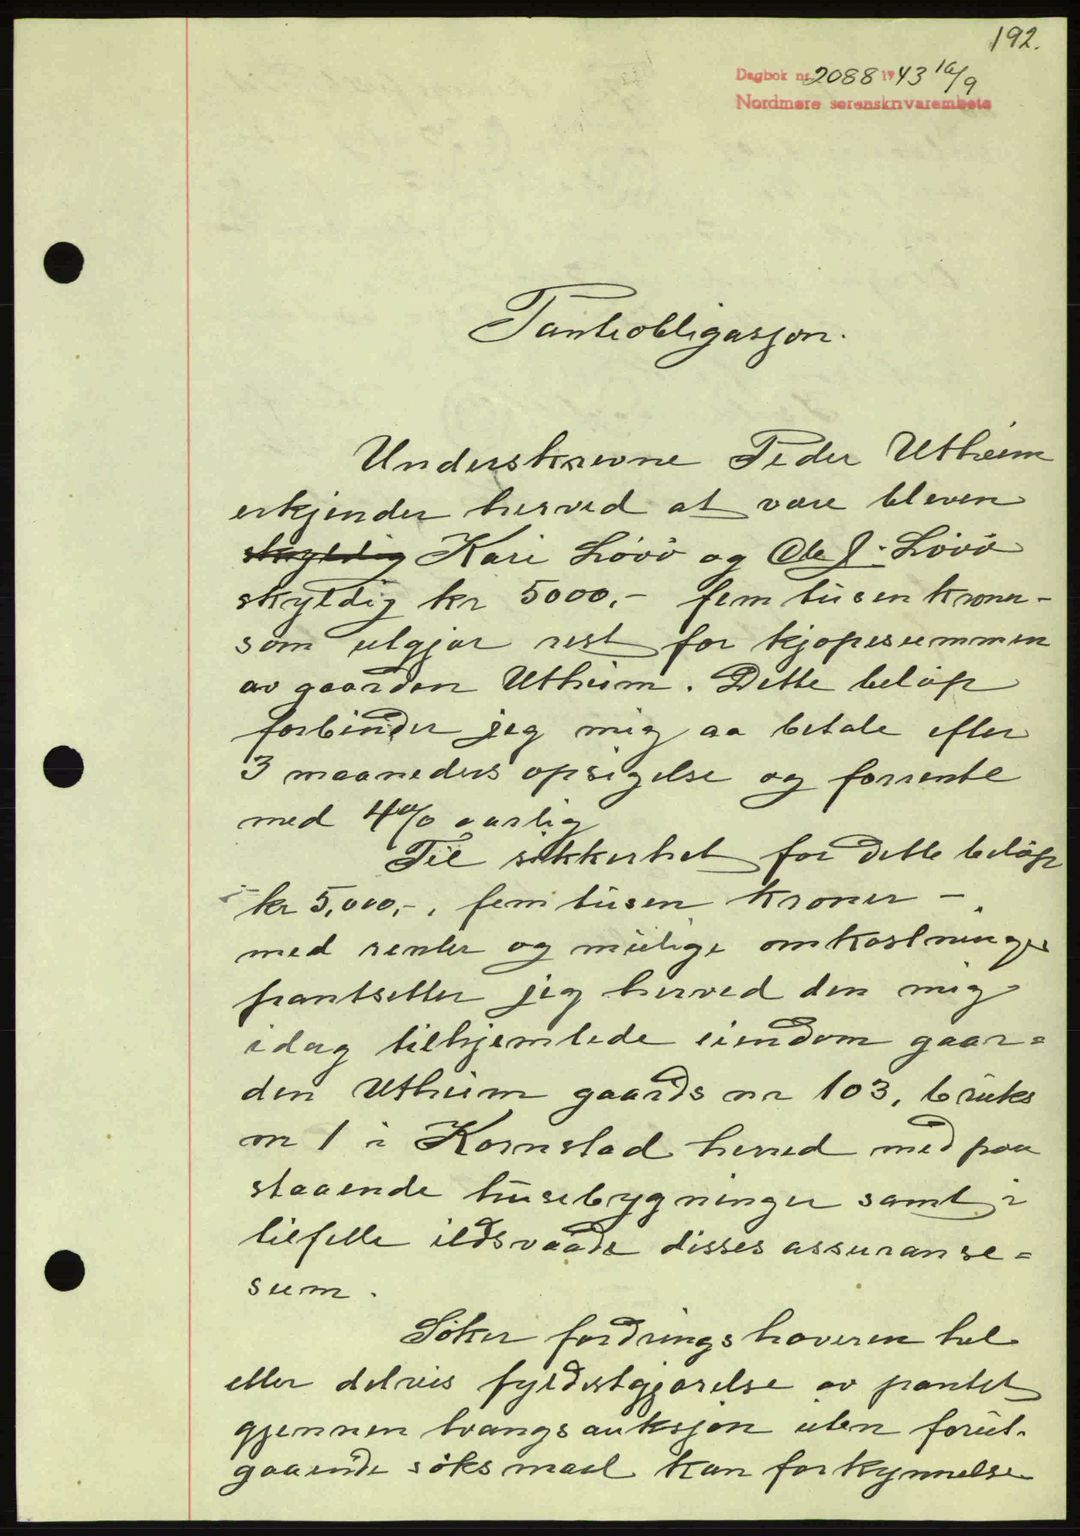 192.
Dagbok nr. 2088 1943 16/9
Nordmøre sorenskriverembete
Panteobligasjon.
Underskrevne Peder Utheim
erkjender herved at være bleven
skyldig Kari Løvö og Ole J. Lövö
skyldig kr 5000,- fem tusen kroner-
som utgjør rest for kjøpesummen
av gaarden Utheim. Dette beløp
forbinder jeg mig aa betale efter
3 maaneders opsigelse og forrente
med 4% aarlig
Til sikkerhet for dette beløp
kr 5,000,-, fem tusen kroner -
med renter og mulige omkostninger
pantsetter jeg herved den mig
idag tilhjemlede eiendom gaar=
den Utheim gaards nr 103, bruks
nr 1 i Kornstad herred med paa
staaende husebygninger samt i
tilfelle ildsvaade disses assuranse=
sum.
Söker fordringshaveren hel
eller delvis fyldestgjørelse av pantet
gjennem tvangsauksjon uten forut-
gaaende söksmaal kan forkynnelse